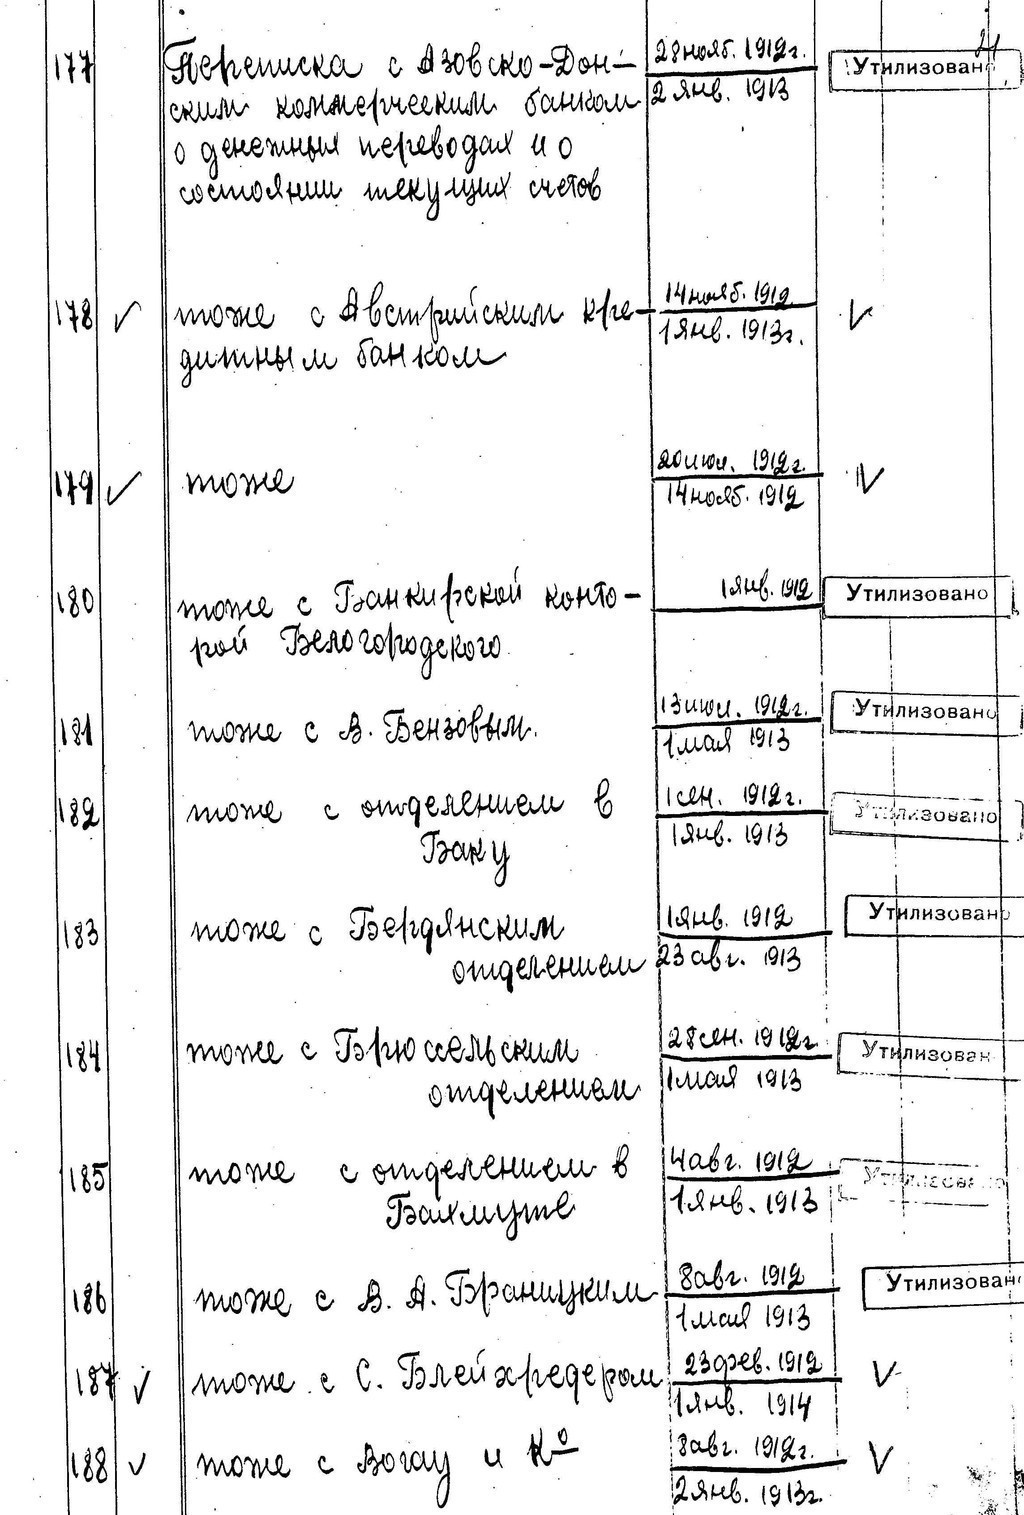 21
177 Переписка с Азовско-Дон- 28 нояб. 1912г. Утилизовано
ским коммерческим банком 2 янв. 1913
о денежных переводах и о
состоянии текущих счетов
178 ✓ тоже с Австрийским кре- 14 нояб. 1912 ✓
дитным банком 1 янв. 1913г.
179 ✓ тоже 20 июл. 1912г. ✓
14 нояб. 1912
180 тоже с Банкирской конто- 1 янв. 1912 Утилизовано
рой Белогородского
181 тоже с В. Бензовым. 13 июл. 1912г. Утилизовано
1 мая 1913
182 тоже с отделением в 1 сен. 1912г. Утилизовано
Баку 1 янв. 1913
183 тоже с Бердянским 1 янв. 1912 Утилизовано
отделением 23 авг. 1913
184 тоже с Брюссельским 28 сен. 1912г. Утилизован
отделением 1 мая 1913
185 тоже с отделением в 4 авг. 1912 Утилизовано
Бахмуте 1 янв. 1913
186 тоже с В. А. Браницким 8 авг. 1912 Утилизовано
1 мая 1913
187 ✓ тоже с С. Блейхредером 23 фев. 1912 ✓
1 янв. 1914
188 ✓ тоже с Вогау и Кº 8 авг. 1912г. ✓
2 янв. 1913г.